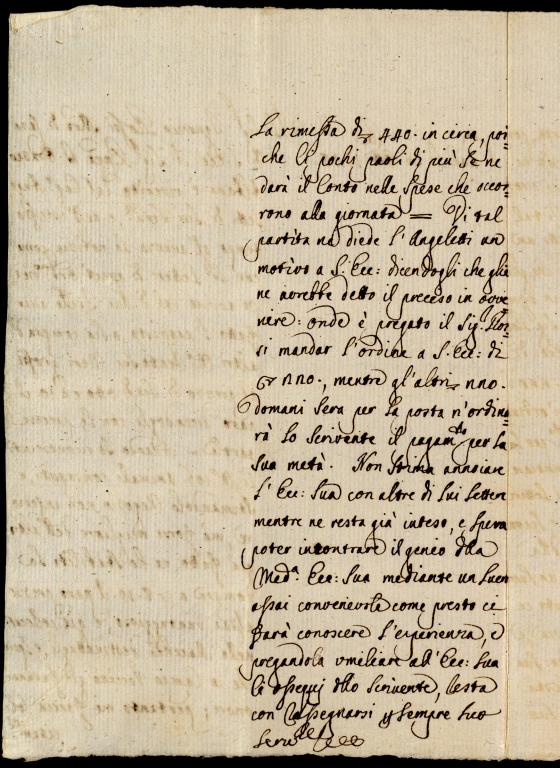 La rimessa di 440. in circa, poi=
che li pochi paoli di più se ne
darà il Conto nelle spese che occor=
rono alla giornata = Di tal
partita na diede l'Angeletti un
motivo a S. Ecc: dicendogli che glia
ne avrebbe detto il preceso in avve
nire: onde è pregato il Sig.
si mandar l'ordine a S. Ecc: di
nno., mentre gl'altri nno.
Domani sera per la posta n'ordine=
rà lo scrivente il pagam.to per la
sua metà. Non stima annoiare
l'Ecc: Sua con altre di lui lettere
mentre ne resta già inteso, e spera
poter incontrare il genio dlla
Med.a Ecc: Sua mediante un
assai convenevole come presto ci
farà conoscere l'esperienza, e
pregandola umiliare all'Ecc: Sua
li ossequi dllo scrivente, resta
con rassegnarsi p sempre suo